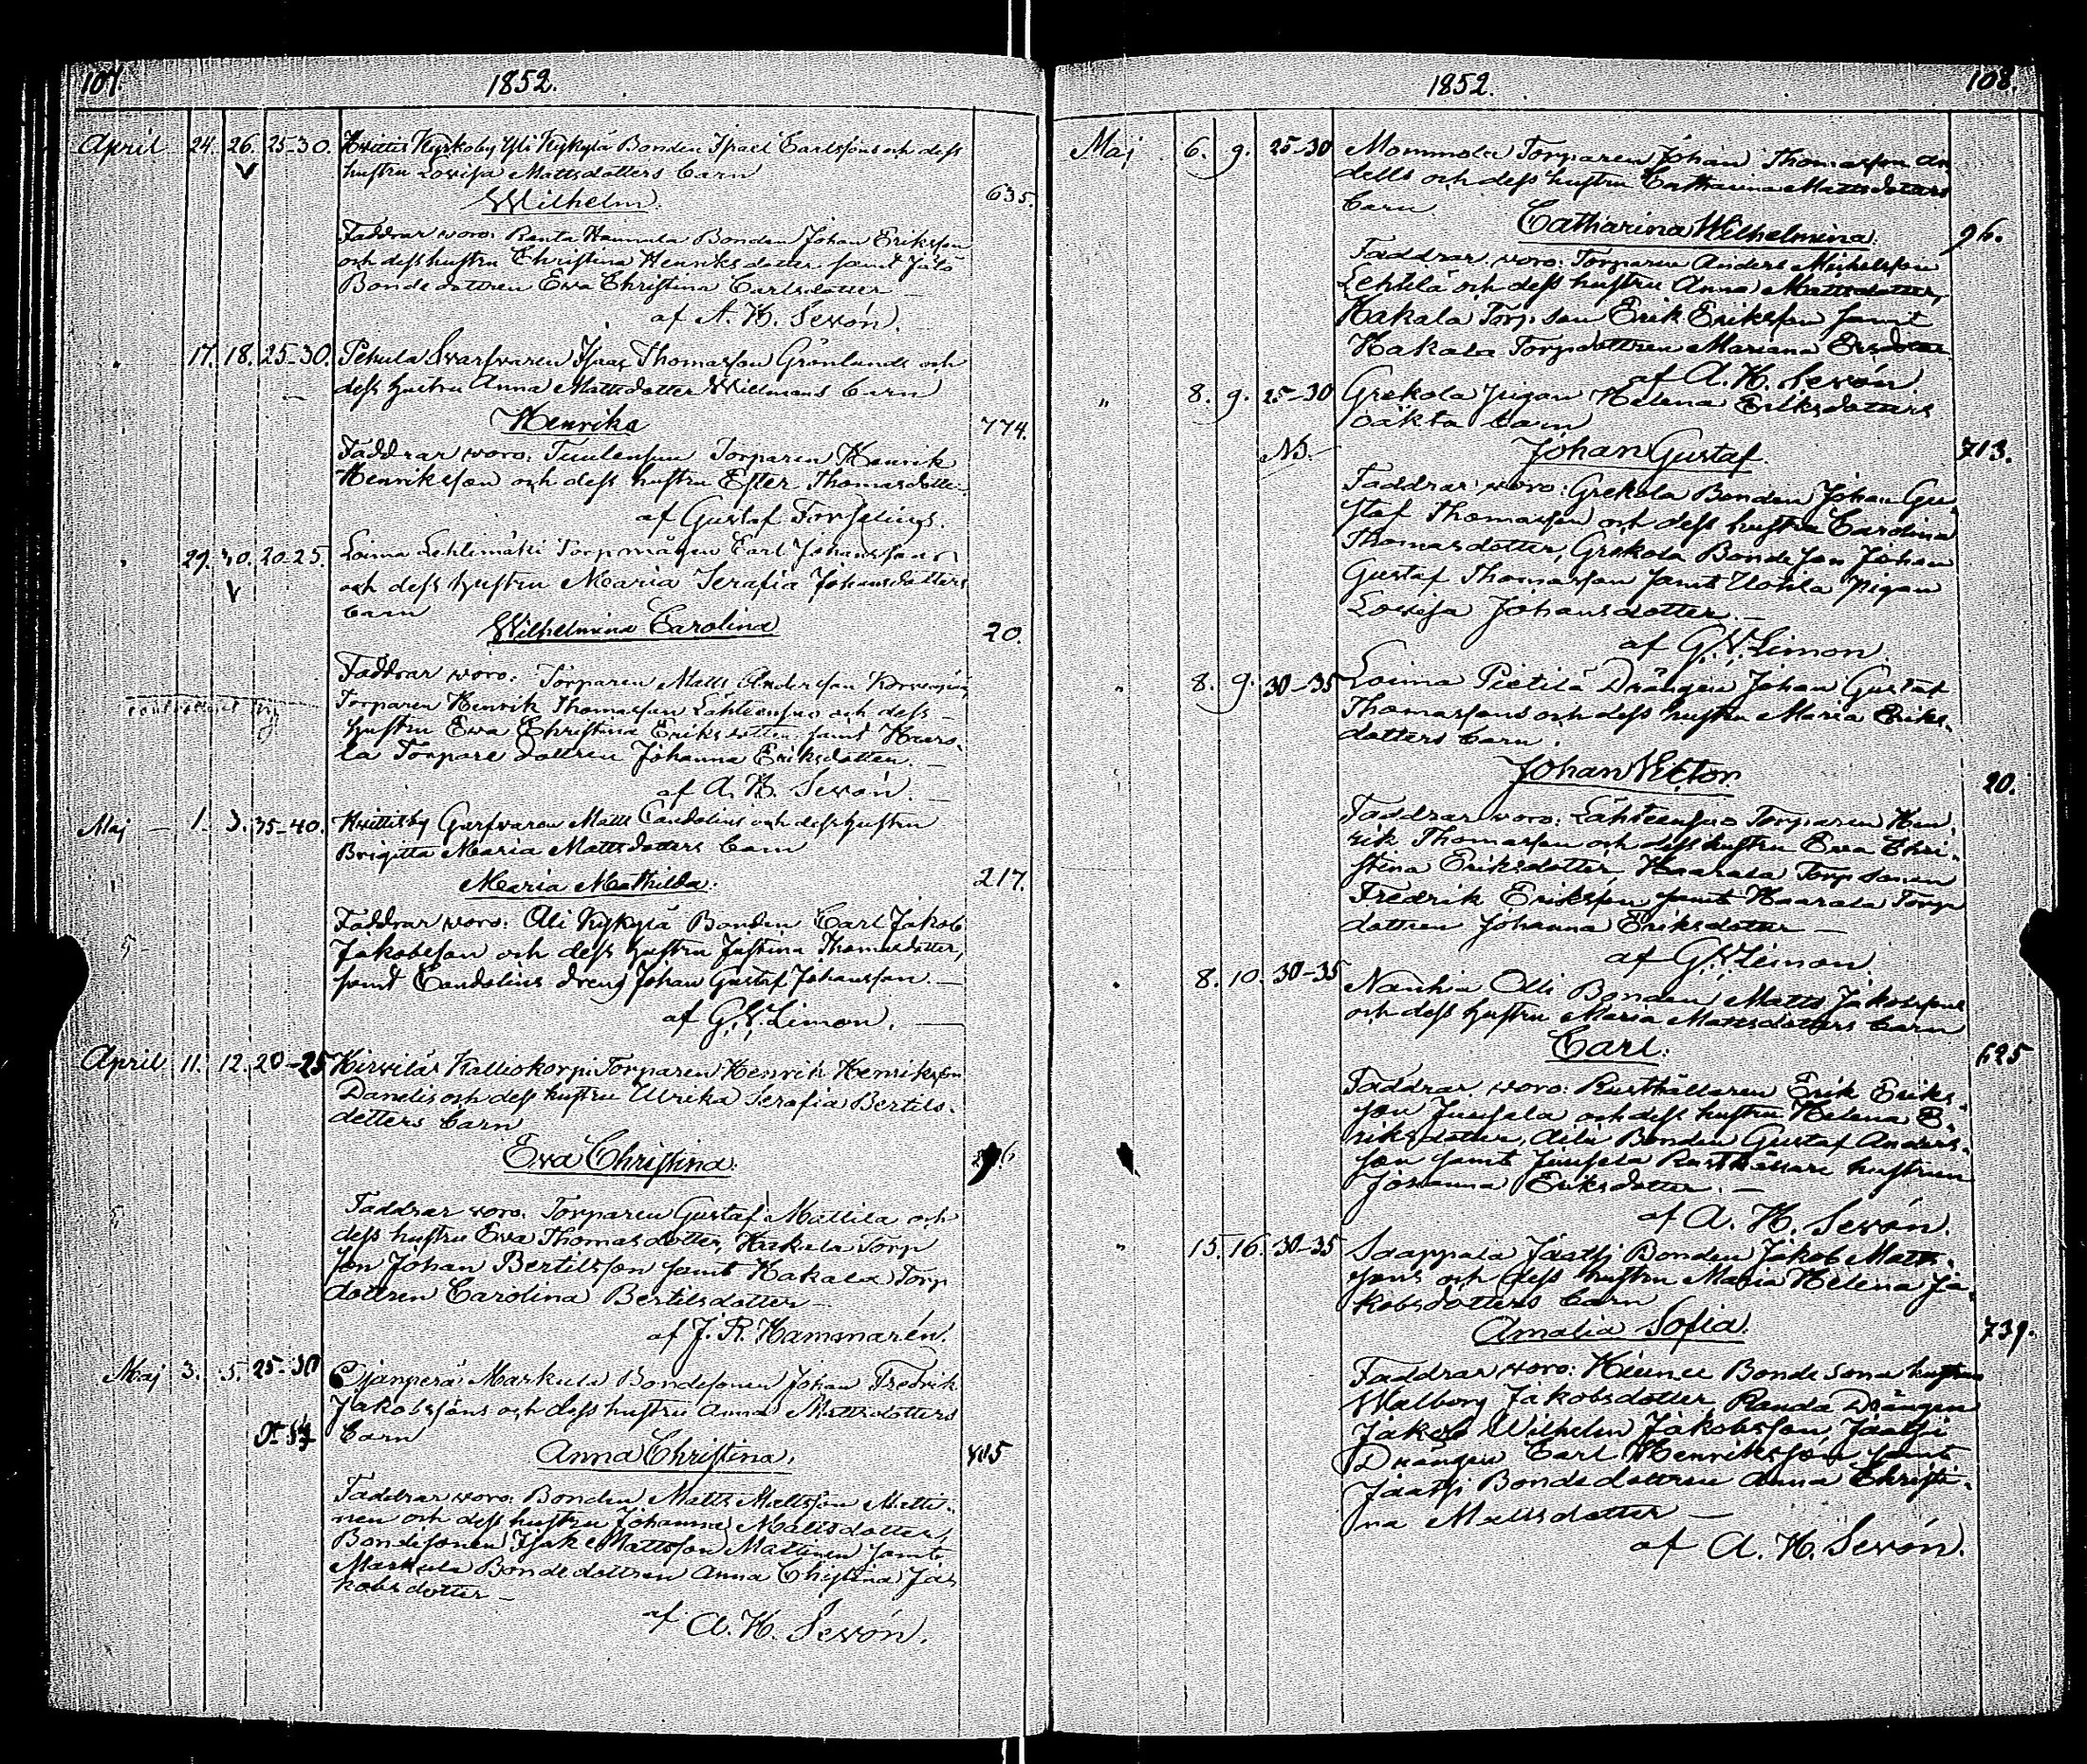 107.
1852.
April 24. 26. 25-30. Kyrkoby Yli Kykylä Bonden Israel Carlssons och dess
hustru Lovisa Mattsdotters barn
Wilhelm.
635.
Faddrar woro: Bonden Johan Eriksson
och dess hustru Christina Henriksdotter samt
Bonde dottren Eva Christina Carlsdotter
af A. H. Sevón.
" 17. 18. 25-30. Pehula Svarfvaren Isaac Thomasson Grönlunds och
dess hustru Anna Mattsdotter Willmans barn
Henrika
774.
Faddrar woro: Torparen Henrik
Henriksson och dess hustru Ester Thomasdotter
af Gustaf
" 29. 30. 20-25. Loima Lehtimäki Torpmågen Carl Johanssons
och dess hustru Maria Serafia Johansdotters
barn
Wilhelmina Carolina
20.
Faddrar woro: Torparen Matts Andersson
Torparen Henrik Thomasson Lähteensuo och dess
hustru Eva Christina Eriksdotter samt Haara-
la Torpare dottren Johanna Eriksdotter.
af A. H. Sevón.
Maj 1. 3. 35-40. Garfvaren Matts Candolins och dess hustru
Brigitta Maria Mattsdotters barn
Maria Mathilda.
217.
Faddrar woro: Kykylä Bonden Carl Jakob
Jakobsson och dess hustru Justina Thomasdotter,
samt Candolins dreng Johan Gustaf Johansson.
af G. V. Limon.
April 11. 12. 20-25 Kalliokorpi Torparen Henrik Henriksson
och dess hustru Ulrika Serafia Bertils-
dotters barn
Eva Christina.
Faddrar woro: Torparen Gustaf Mattila och
dess hustru Eva Thomasdotter, Hakala Torp
son Johan Bertilsson samt Hakala Torp
dottren Carolina Bertilsdotter
af J. R. Hammarén.
Maj 3. 5. 25-30 Markula Bondesonen Johan Fredrik
Jakobssons och dess hustru Anna Mattsdotters
barn
Anna Christina.
Faddrar woro: Bonden Matts Mattsson Matti-
nen och dess hustru Johanna Mattsdotter,
Bondesonen Isak Mattsson Mattinen samt
Markula Bonde dottren Anna Christina Ja-
kobsdotter
af A. H. Sevón.
1852.
108.
Maj 6. 9. 25-30 Mommola Torparen Johan Thomasson
och dess hustru Catharina Mattsdotters
barn
Catharina Wilhelmina.
96.
Faddrar woro: Torparen Anders Michelsson
Lehtilä och dess hustru Anna Mattsdotter,
Hakala Torp. son Erik Eriksson samt
Hakala Torpdottren Mariana
af A. H. Sevón
" 8. 9. 25-30 Grekola Pigan Helena Eriksdotters
oäkta barn
Johan Gustaf.
713.
Faddrar woro: Grekola Bonden Johan Gu-
staf Thomasson och dess hustru Carolina
Thomasdotter, Grekola Bondeson Johan
Gustaf Thomasson samt Pigan
Lovisa Johansdotter.
af G. V. Limon
" 8. 9. 30-35 Loima Pietilä Drängen Johan Gustaf
Thomassons och dess hustru Maria Eriks-
dotters barn.
Johan Victor.
20.
Faddrar woro: Lähteensuo Torparen Hen-
rik Thomasson och dess hustru Eva Chri-
stina Eriksdotter, Haarala Torpsonen
Fredrik Eriksson samt Haarala Torp
dottren Johanna Eriksdotter
af G. V. Limon.
" 8. 10. 30-35 Nanhia Olli Bonden Matts Jakobssons
och dess hustru Maria Mattsdotters barn
Carl.
625
Faddrar woro: Rusthållaren Erik Eriks-
son och dess hustru Helena E-
riksdotter, Bonden Gustaf Anders-
son samt Rusthållare hustrun
Johanna Eriksdotter.
af A. H. Sevón.
" 15. 16. 30-35 Saappala Jaatsi Bonden Jakob Matts-
sons och dess hustru Maria Helena Ja-
kobsdotters barn
Amalia Sofia.
739.
Faddrar woro: Bondesons hustrun
Walborg Jakobsdotter, Drängen
Jakob Wilhelm Jakobsson, Jaatsi
Drängen Carl Henriksson samt
Jaatsi Bonde dottren Anna Christi-
na Mattsdotter
af A. H. Sevón.